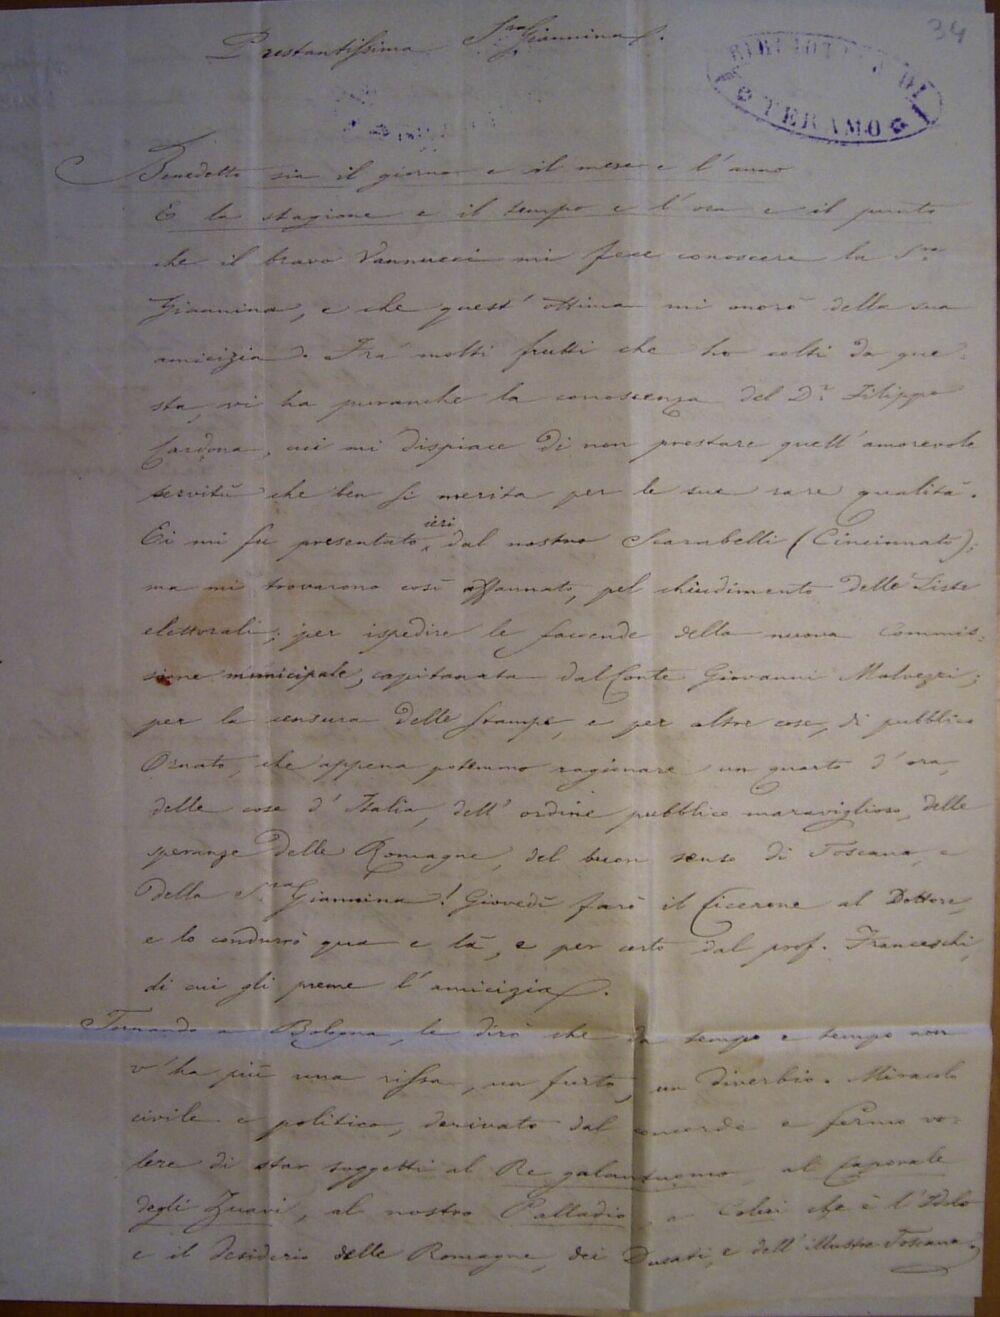 34
Prestantissima Sra Giannina.
BIBLIOTECA DI
TERAMO
Benedetto sia il giorno e il mese e l'anno
E la stagione e il tempo e l'ora e il punto
che il bravo Vannucci mi fece conoscere la Sra
Giannina, e che quest'ottima mi onorò della sua
amicizia. Fra' molti frutti che ho colti da que-
sta, vi ha puranche la conoscenza del Dr. Filippo
Cardona, cui mi dispiace di non prestare quell'amorevole
servitù che ben si merita per le sue rare qualità.
Ei mi fu presentato ieri dal nostro Scarabelli (Cincinnato);
ma mi trovarono così affannato, pel chiudimento delle Liste
elettorali; per ispedire le faccende della nuova Commis-
sione municipale, capitanata dal Conte Giovanni Malvezzi;
per la censura delle stampe, e per altre cose di pubblico
Ornato, che appena potemmo ragionare un quarto d'ora,
delle cose d'Italia, dell'ordine pubblico maraviglioso, delle
speranze delle Romagne, del buon senso di Toscana, e
della Sra Giannina! Giovedì farò il Cicerone al Dottore,
e lo condurrò qua e là, e per certo dal prof. Franceschi,
di cui gli preme l'amicizia.
Tornando a Bologna, le dirò che da tempo e tempo non
v'ha più una rissa, un furto, un diverbio. Miracolo
civile e politico, derivato dal concorde e fermo vo-
lere di star soggetti al Re galantuomo, al Caporale
degli Zuavi, al nostro Palladio, a Colui che è l'Idolo
e il desiderio delle Romagne, dei Ducati, e dell'illustre Toscana.